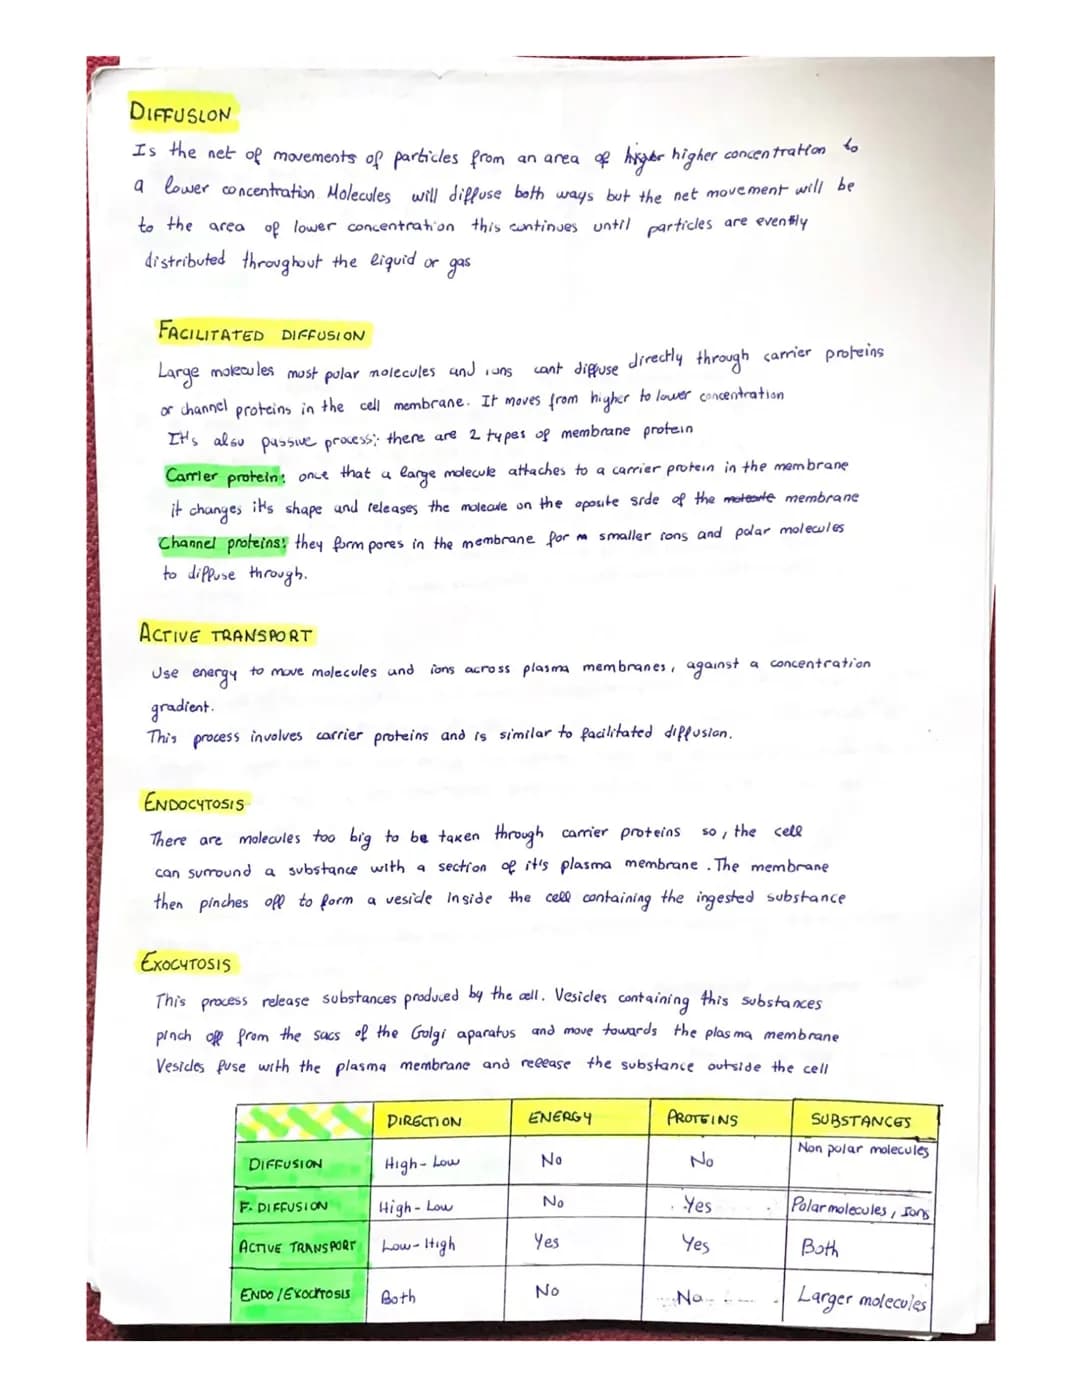 DIFFUSION
Is the net of movements of particles from an area of higher concentration to
a lower concentration Molecules will diffuse both ways but the net movement will be
to the area of lower concentration this continues until particles are evently
distributed throughout the liquid or gas
FACILITATED DIFFUSION
Large molecules most polar molecules and ions cant diffuse directly through carrier proteins
or channel proteins in the cell membrane. It moves from higher to lower concentration
It's also passive process; there are 2 types of membrane protein
Carrier protein: once that a large molecule attaches to a carrier protein in the membrane
it changes it's shape and releases the molecule on the oposite side of the membrane
Channel proteins: they form pores in the membrane for smaller ions and polar molecules
to diffuse through.
ACTIVE TRANSPORT
Use energy to move molecules and ions across plasma membranes, against a concentration
gradient.
This process involves carrier proteins and is similar to facilitated diffusion.
ENDOCYTOSIS
There are molecules too big to be taken through carrier proteins so, the cell
can surround a substance with a section of it's plasma membrane. The membrane
then pinches off to form a vesicle inside the cell containing the ingested substance
EXOCYTOSIS
This process release substances produced by the cell. Vesicles containing this substances
pinch off from the sacs of the Golgi aparatus and move towards the plasma membrane
Vesicles fuse with the plasma membrane and release the substance outside the cell
DIRECTION ENERGY PROTEINS SUBSTANCES
DIFFUSION High-Low No No Non polar molecules
F. DIFFUSION High-Low No Yes Polar molecules, Ions
ACTIVE TRANSPORT Low-High Yes Yes Both
ENDO/EXOCYTOSIS Both No No Larger molecules